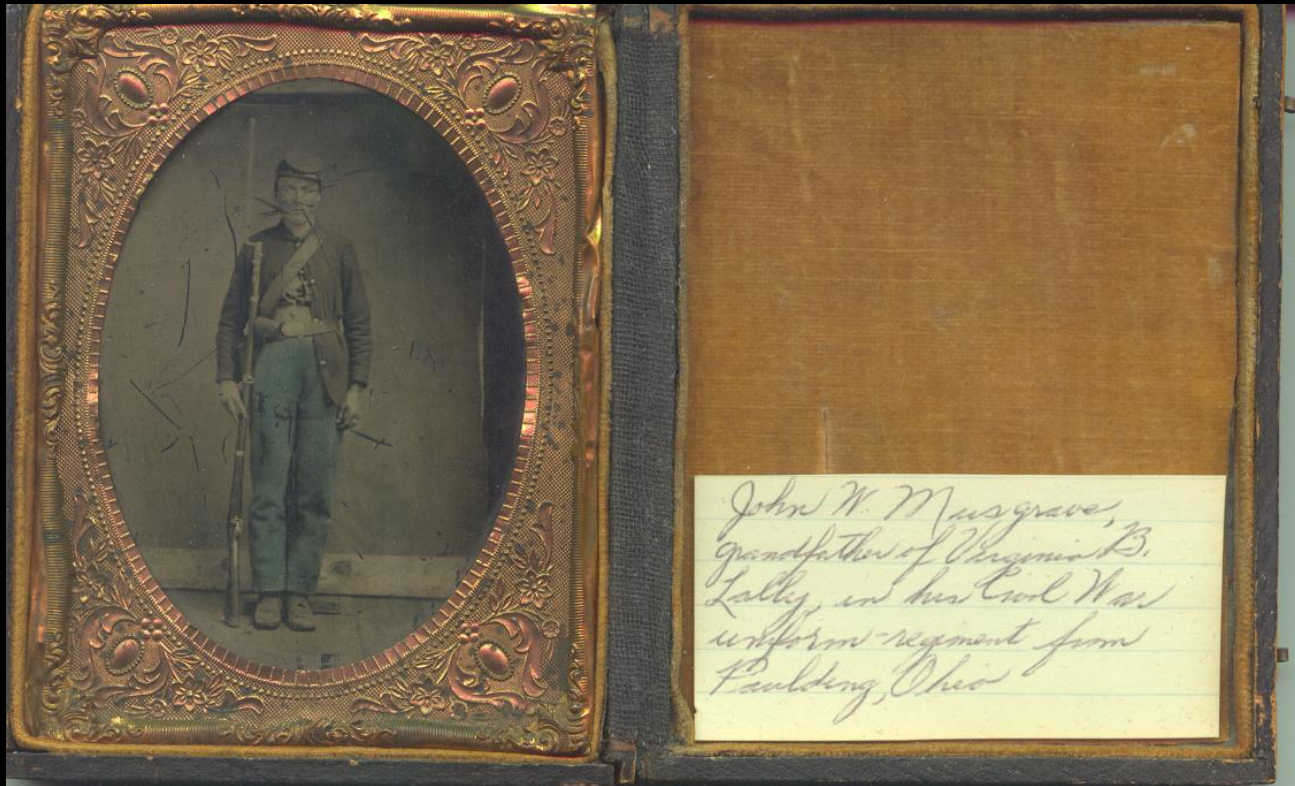 John W. Musgrave,
grandfather of Virginia B.
Lally, in his Civil War
uniform-regiment from
Paulding, Ohio